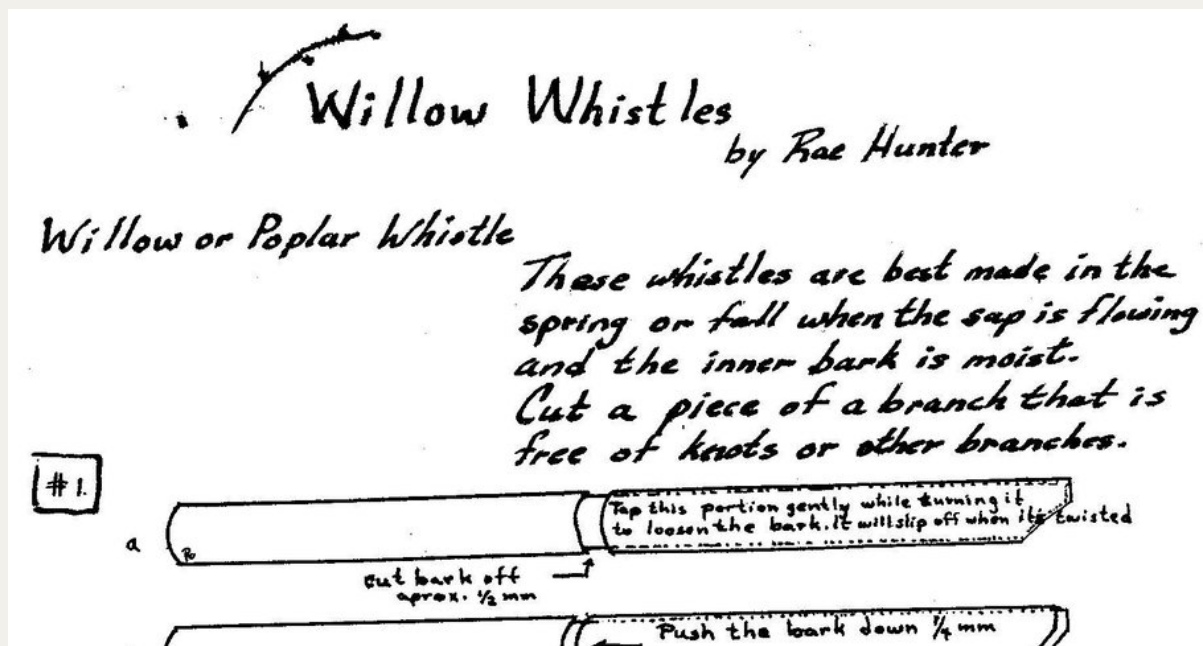 Willow Whistles
by Rae Hunter
Willow or Poplar Whistle
These whistles are best made in the
spring or fall when the sap is flowing
and the inner bark is moist.
Cut a piece of a branch that is
free of knots or other branches.
#1.
Tap this portion gently while turning it
to loosen the bark. It will slip off when its twisted
a
cut bark off
aprox. 1/2 mm
Push the bark down 1/4 mm